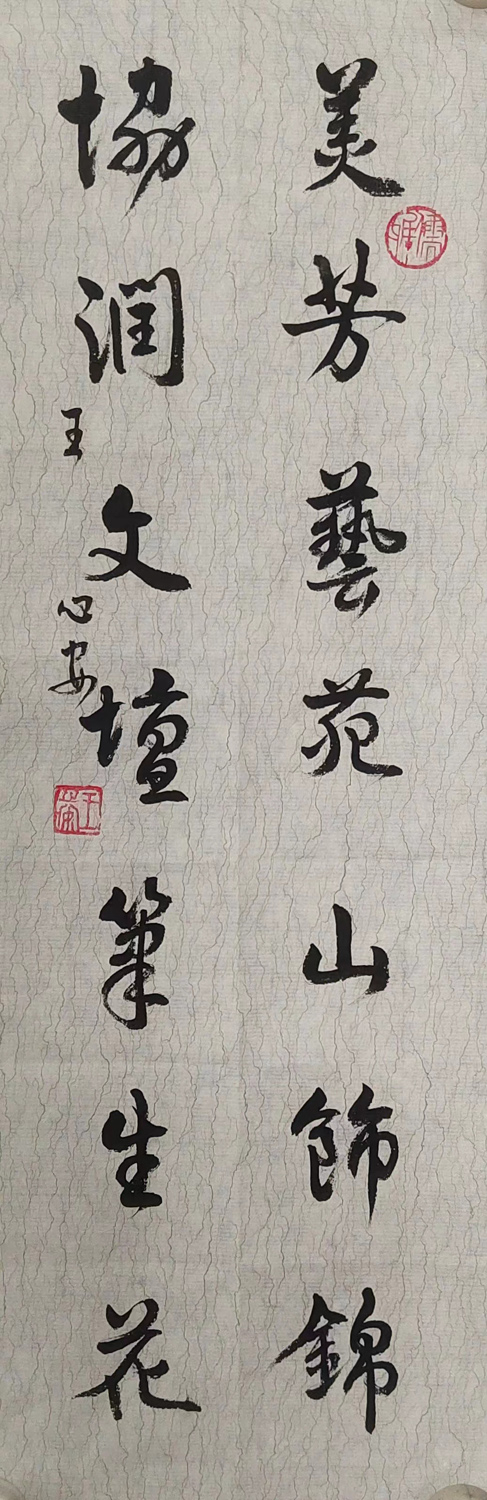 美芳藝苑山飾錦
協潤文壇筆生花
王心安